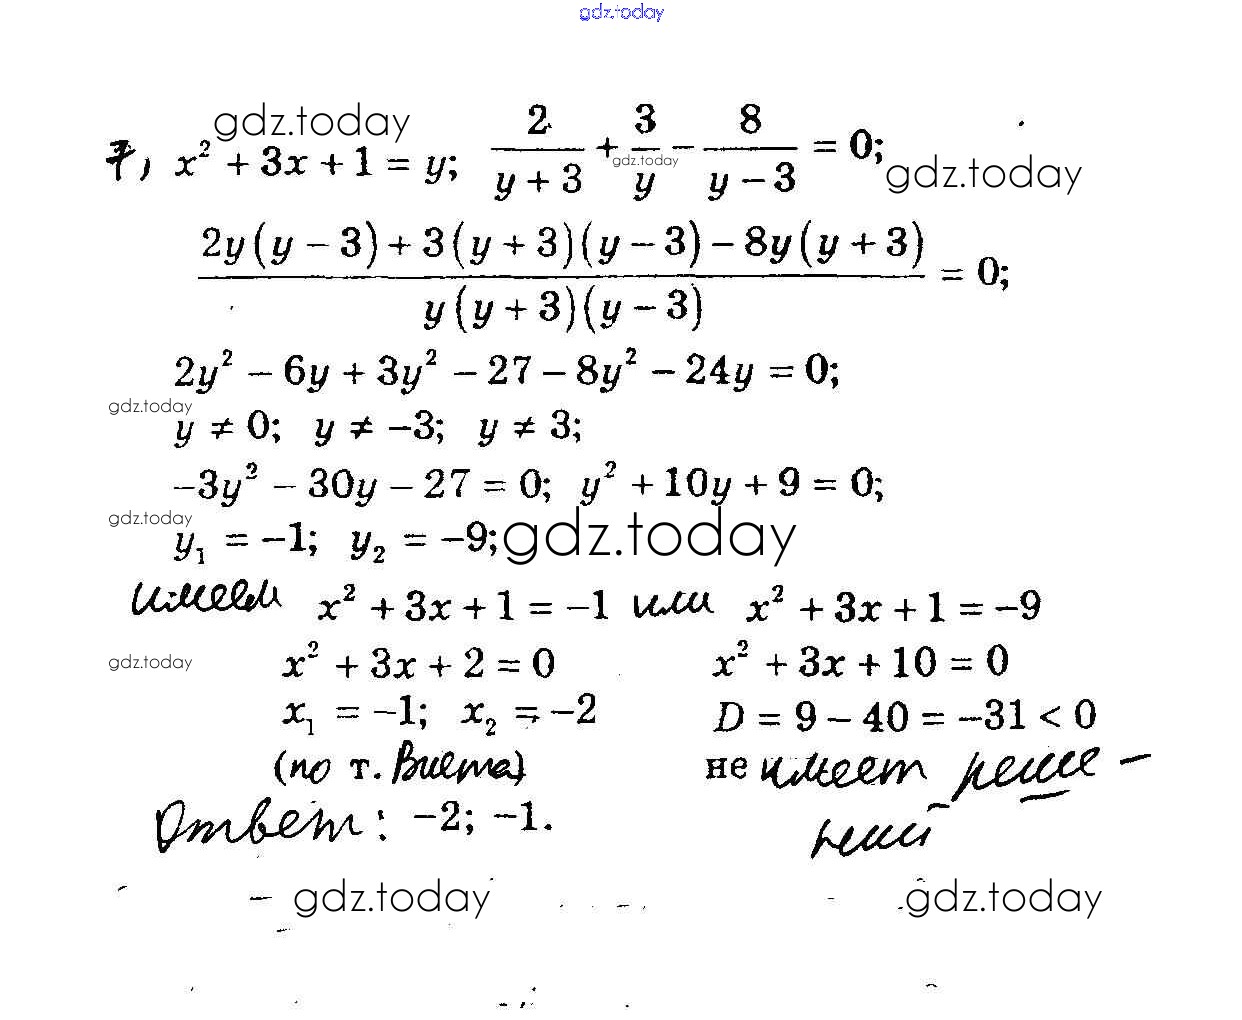 gdz.today
gdz.today
7) x² + 3x + 1 = y; 2/(y + 3) + 3/y − 8/(y − 3) = 0;
gdz.today
gdz.today
(2y(y − 3) + 3(y + 3)(y − 3) − 8y(y + 3))/(y(y + 3)(y − 3)) = 0;
2y² − 6y + 3y² − 27 − 8y² − 24y = 0;
gdz.today
y ≠ 0; y ≠ −3; y ≠ 3;
−3y² − 30y − 27 = 0; y² + 10y + 9 = 0;
gdz.today
y₁ = −1; y₂ = −9; gdz.today
имеем x² + 3x + 1 = −1 или x² + 3x + 1 = −9
gdz.today x² + 3x + 2 = 0 x² + 3x + 10 = 0
x₁ = −1; x₂ = −2 D = 9 − 40 = −31 < 0
(по т. Виета) не имеет реше-
Ответ: −2; −1. ний
gdz.today gdz.today